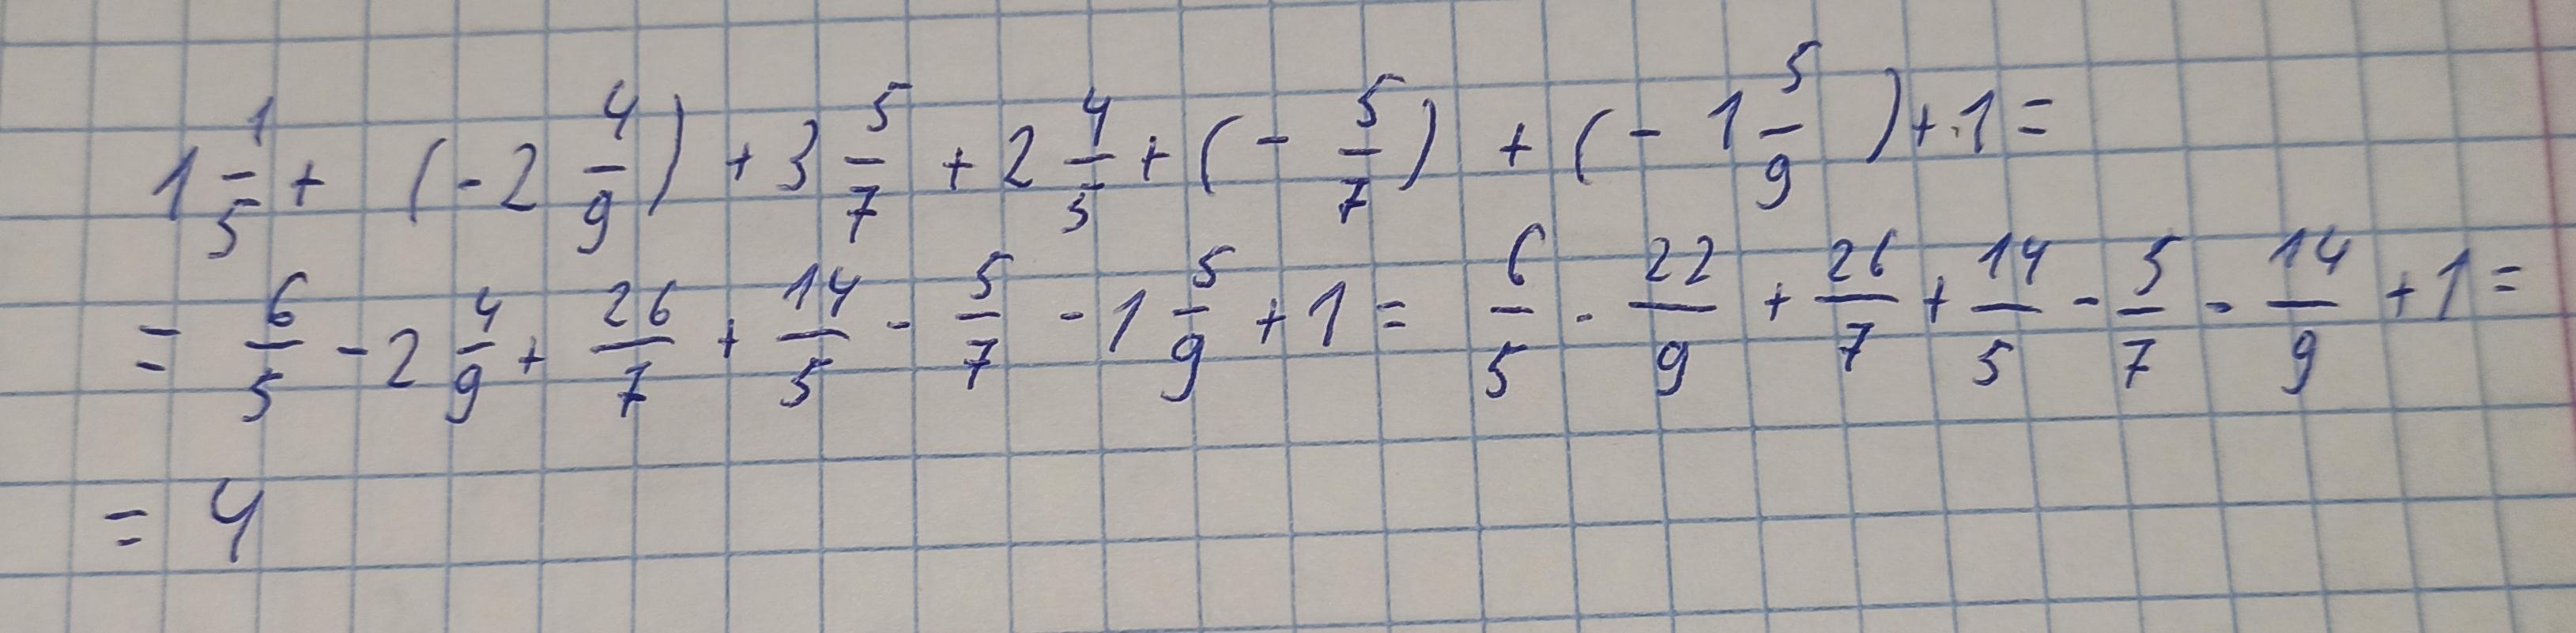 1 1/5 + (-2 4/9) + 3 5/7 + 2 4/5 + (- 5/7) + (- 1 5/9) + 1 =
= 6/5 - 2 4/9 + 26/7 + 14/5 - 5/7 - 1 5/9 + 1 = 6/5 - 22/9 + 26/7 + 14/5 - 5/7 - 14/9 + 1 =
= 4